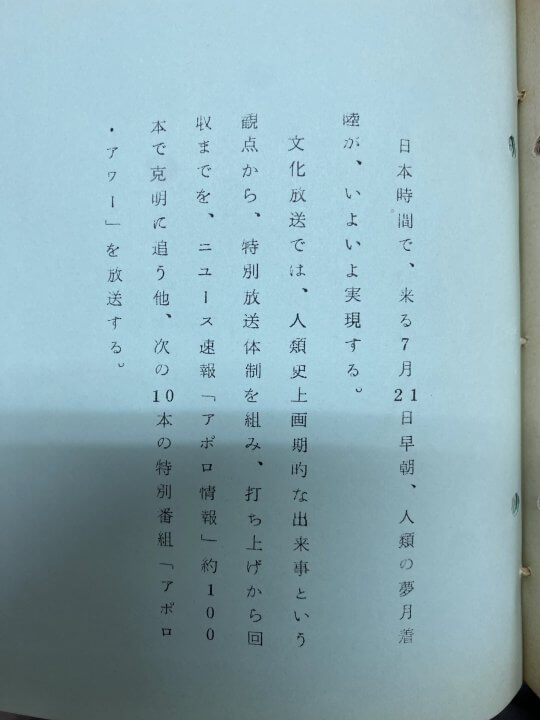 日本時間で、来る7月21日早朝、人類の夢月着
陸が、いよいよ実現する。
文化放送では、人類史上画期的な出来事という
観点から、特別放送体制を組み、打ち上げから回
収までを、ニュース速報「アポロ情報」約100
本で克明に追う他、次の10本の特別番組「アポロ
・アワー」を放送する。